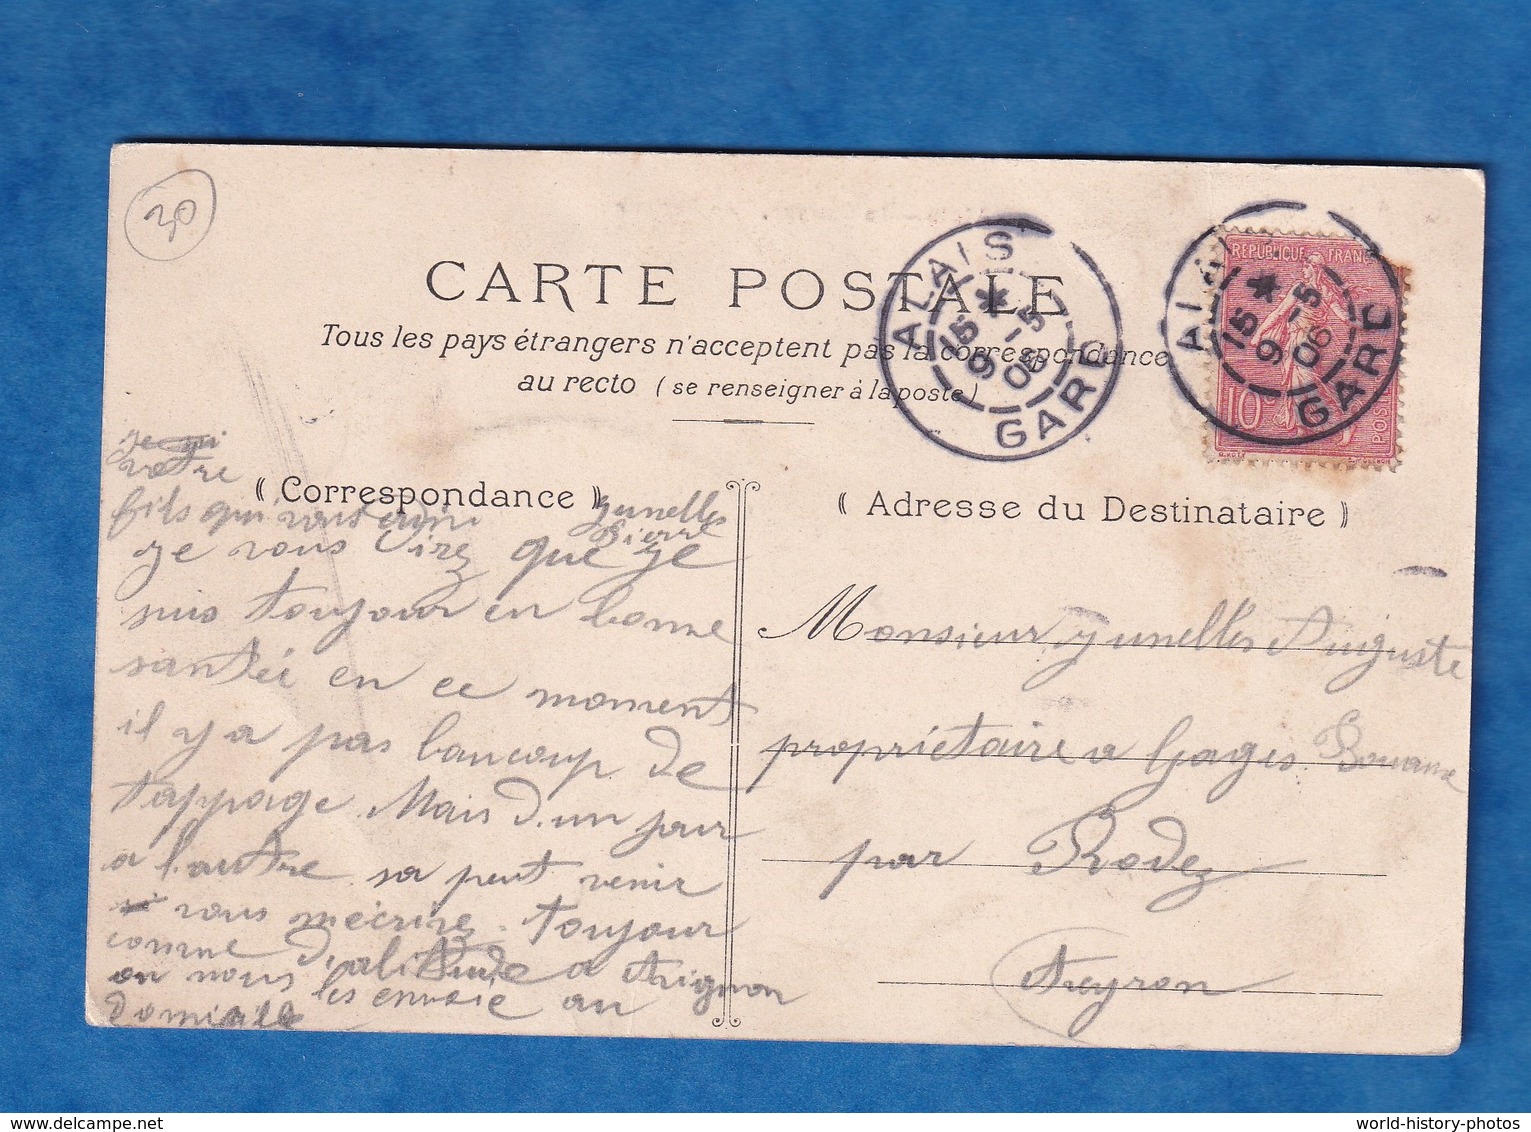 30
CARTE POSTALE
Tous les pays étrangers n'acceptent pas la correspondance
au recto (se renseigner à la poste)
ALAIS
15 *
9 - 5
06
GARD
ALAIS
15 *
9 - 5
06
GARE
REPUBLIQUE FRANC
10
POSTES
« Correspondance »
« Adresse du Destinataire »
votre
fils qui vous
Junelles
Pierre
je vous direz que je
suis toujour en bonne
santéi en ce moment
il y a pas baucoup de
tappage. Mais d.un jour
a l'autre sa peut venir
vous mecrirez. toujour
comme d, alitude a Avignon
on nous les envoie au
domicile
Monsieur Junelles Auguste
propriétaire a Gages
par Rodez
Aveyron
world-history-photos